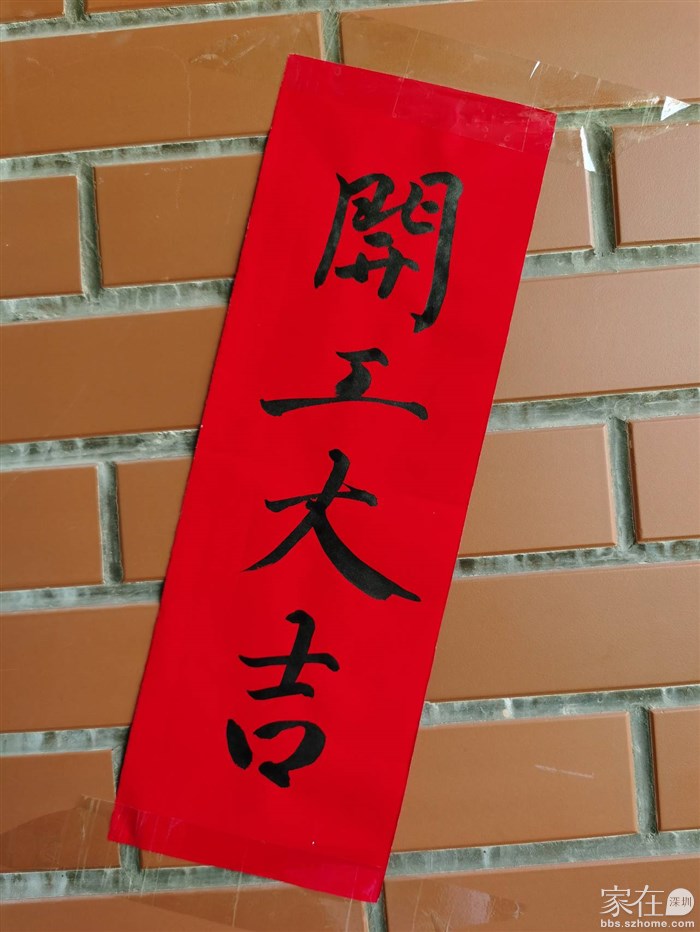 開工大吉
家在深圳
bbs.szhome.com